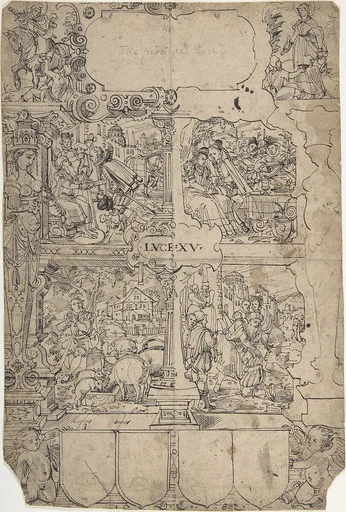 The prodigal Son
·LVCE·XV·